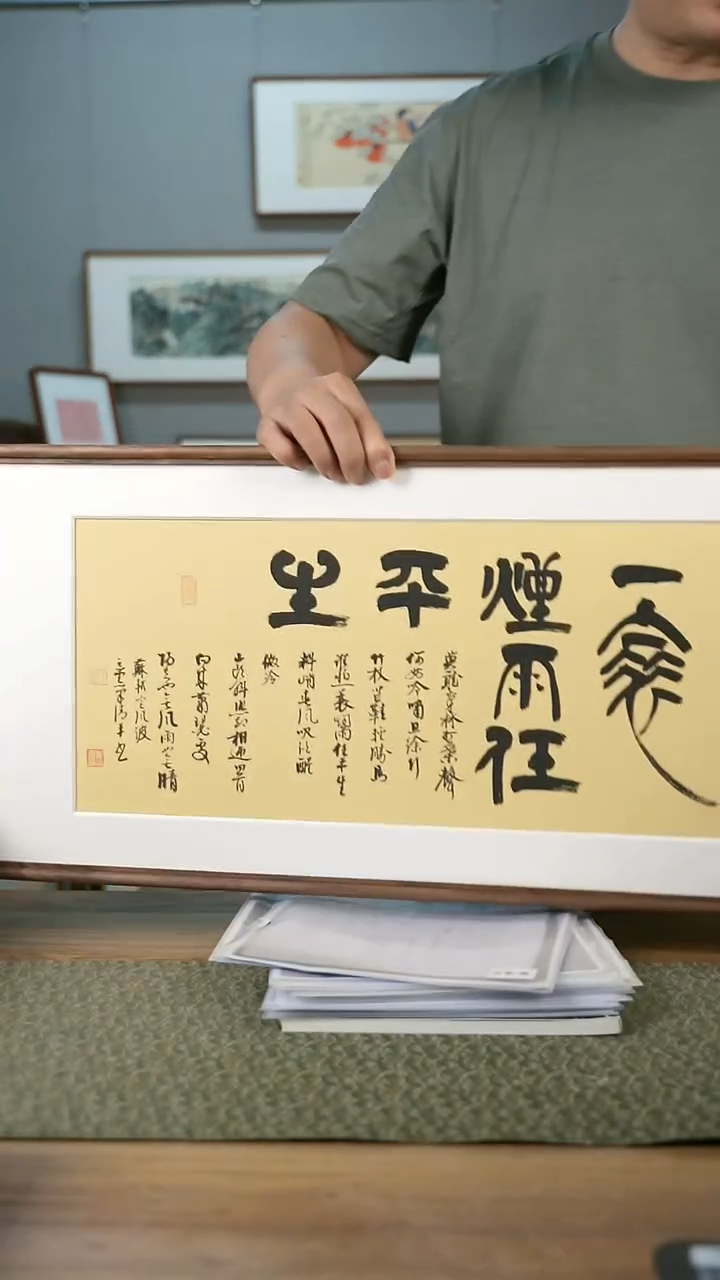 一蓑
煙雨任
平
生
莫聽穿林打葉聲
何妨吟嘯且徐行
竹杖芒鞋輕勝馬
誰怕一蓑煙雨任平生
料峭春風吹酒醒
微冷
山頭斜照卻相迎回首
向來蕭瑟處
歸去也無風雨也無晴
蘇軾定風波